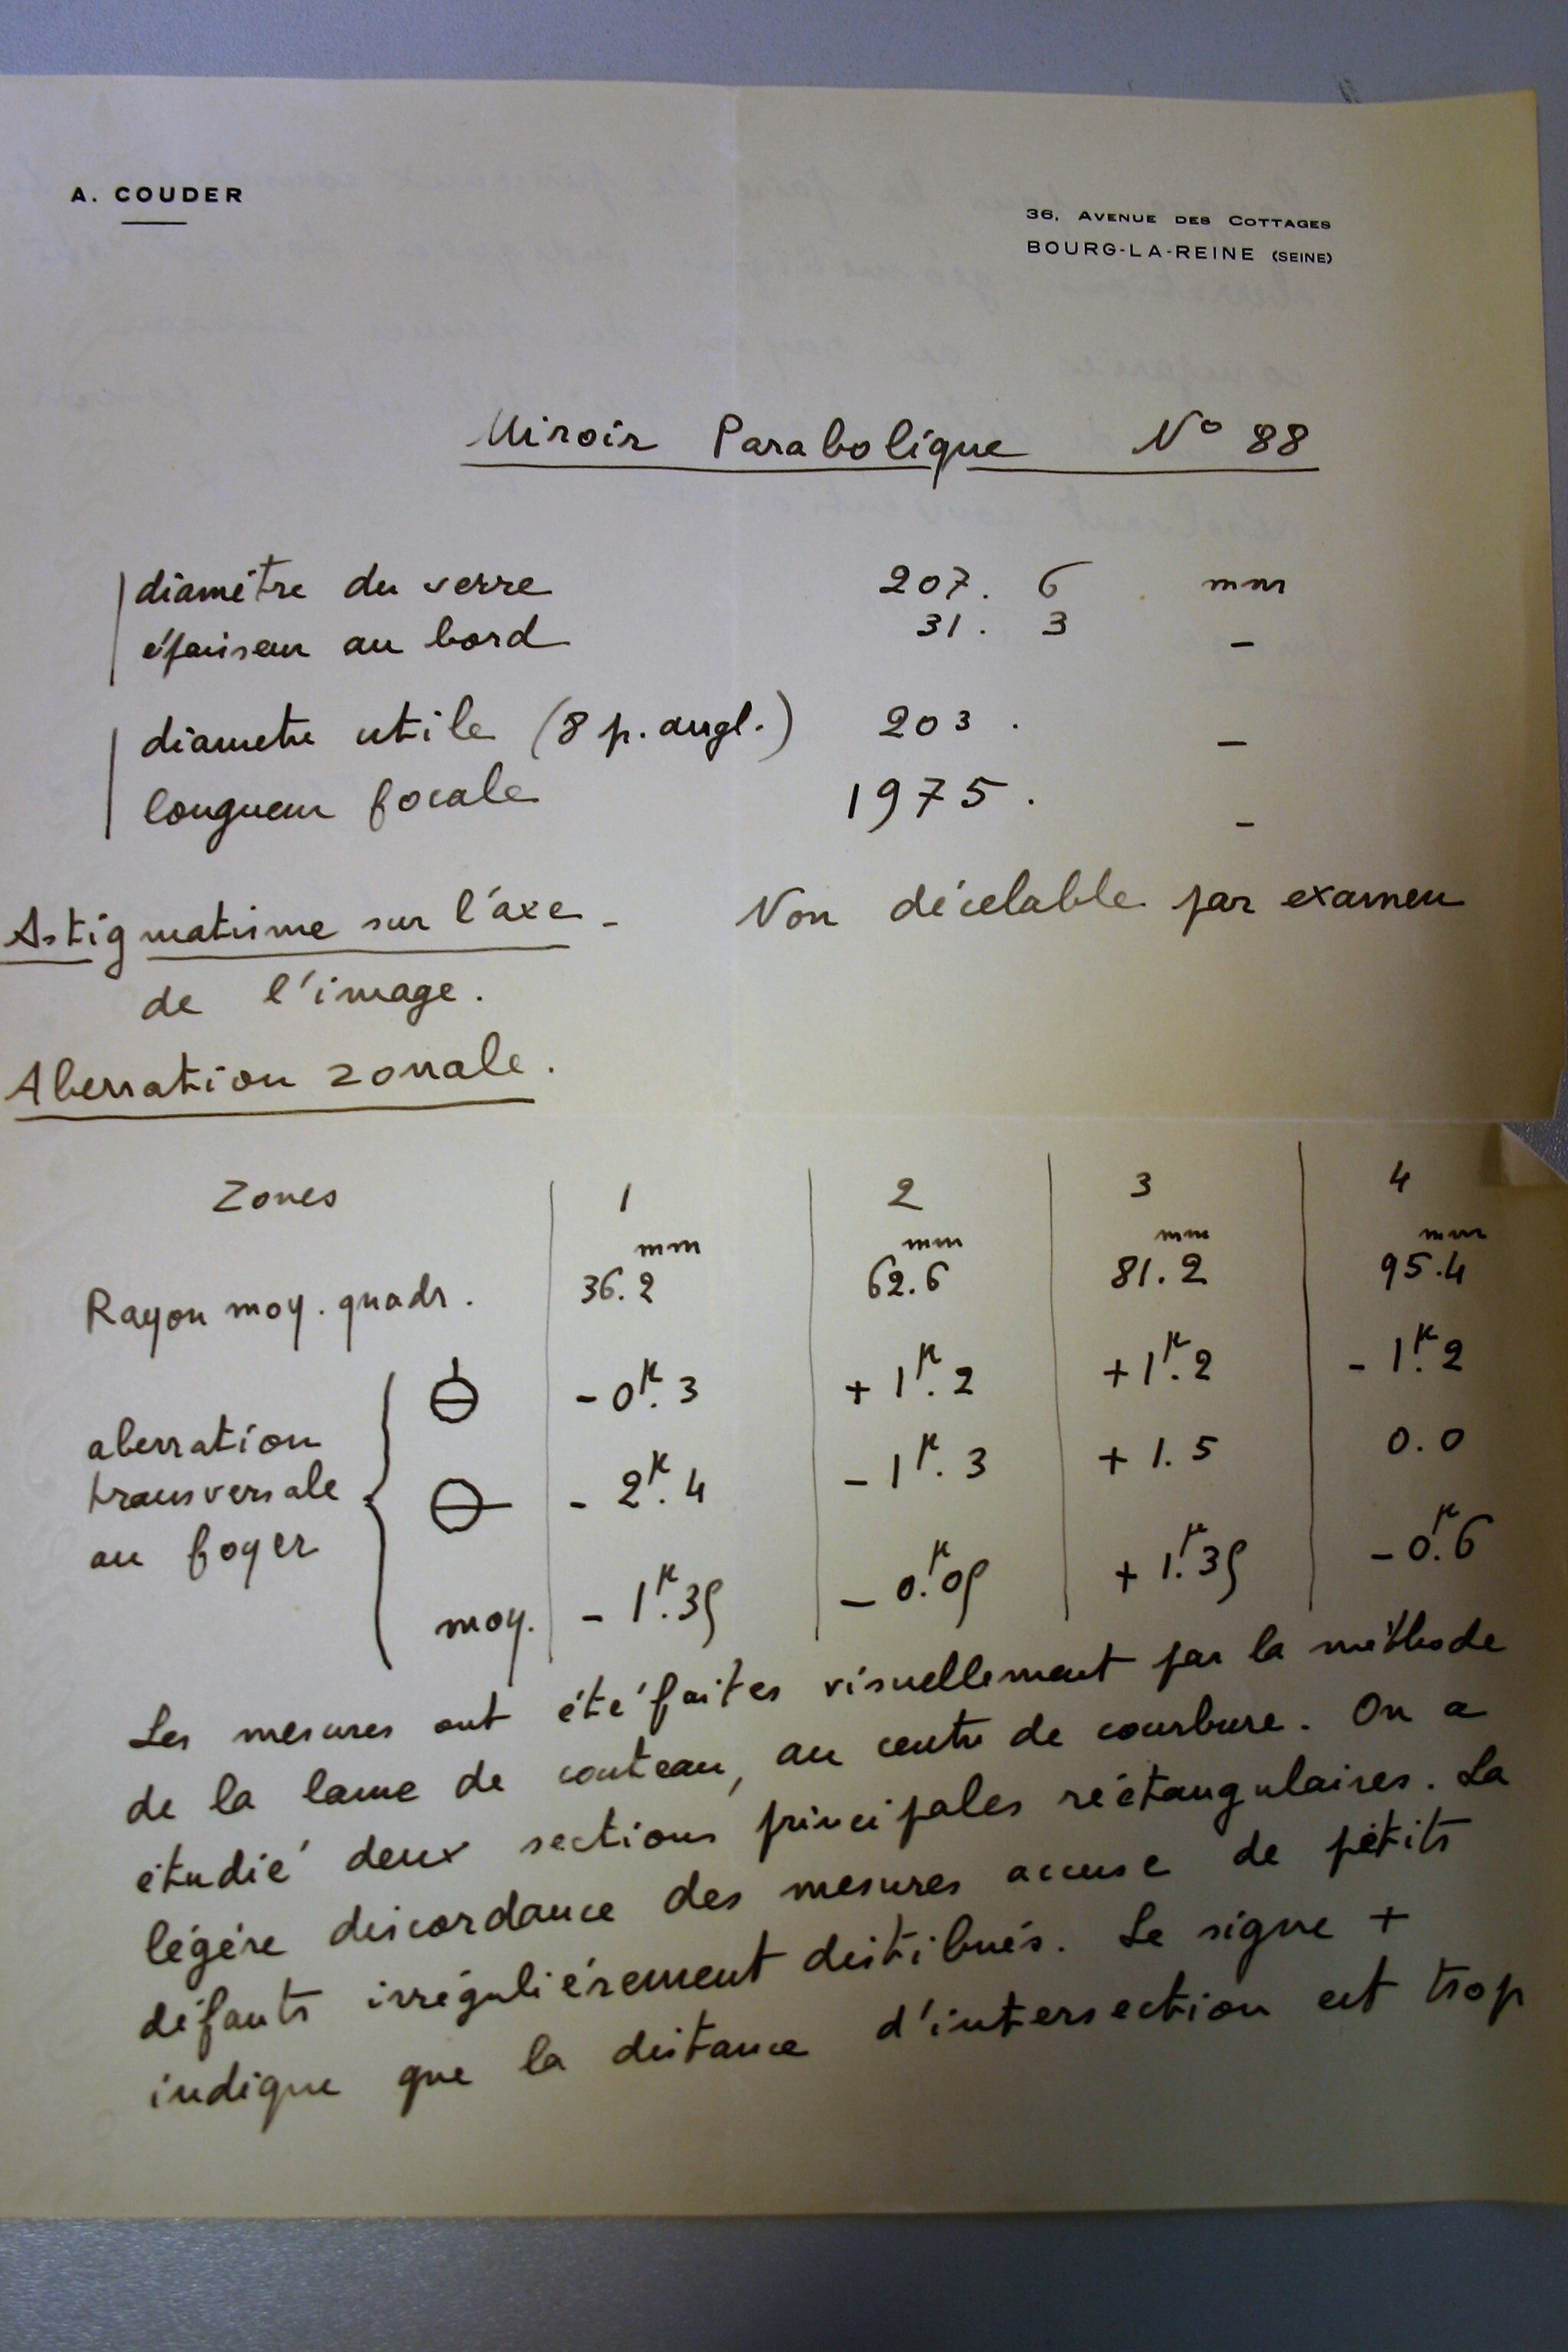 A. COUDER
36, AVENUE DES COTTAGES
BOURG-LA-REINE (SEINE)
Miroir Parabolique N° 88
diamètre du verre 207. 6 mm
épaisseur au bord 31. 3 –
diametre utile (8 p. angl.) 203. –
longueur focale 1975. –
Astigmatisme sur l'axe – Non décelable par examen
de l'image.
Aberration zonale.
Zones 1 2 3 4
mm mm mm mm
Rayon moy. quadr. 36.2 62.6 81.2 95.4
- 0μ.3 + 1μ.2 + 1μ.2 - 1μ.2
aberration
transversale - 2μ.4 - 1μ.3 + 1.5 0.0
au foyer
moy. - 1μ.35 - 0μ.05 + 1μ.35 - 0μ.6
Les mesures ont été faites visuellement par la méthode
de la lame de couteau, au centre de courbure. On a
étudié deux sections principales réctangulaires. La
légère discordance des mesures accuse de petits
défauts irrégulièrement distribués. Le signe +
indique que la distance d'intersection est trop